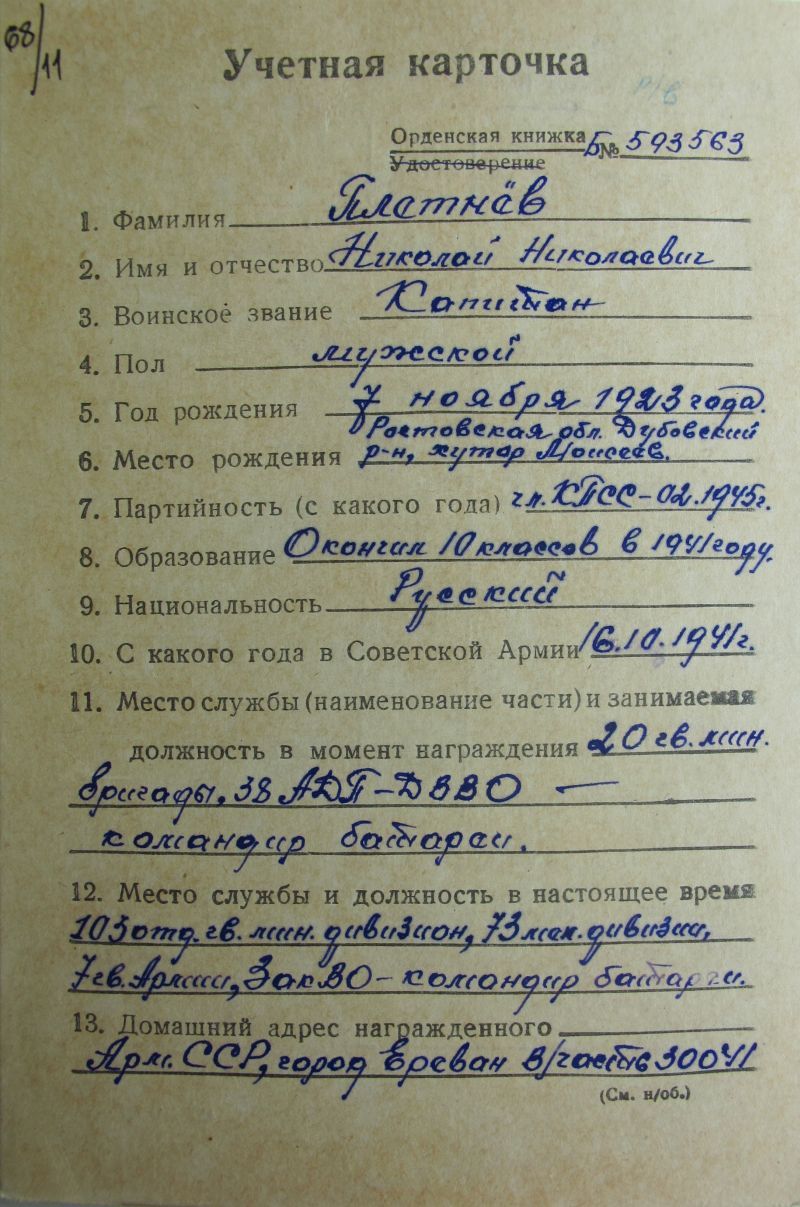 68/11
Учетная карточка
Орденская книжка Б № 593563
Удостоверение
1. Фамилия Платнёв
2. Имя и отчество Николай Николаевич
3. Воинское звание Капитан
4. Пол мужской
5. Год рождения 7 ноября 1923 года.
Ростовская обл. Дубовский
6. Место рождения р-н, хутор Моисеев.
7. Партийность (с какого года) чл. КПСС - 02.1945г.
8. Образование Окончил 10 классов в 1941 году.
9. Национальность Русский
10. С какого года в Советской Армии 16.10.1941г.
11. Место службы (наименование части) и занимаемая
должность в момент награждения 20 гв. мин.
бригады, 38 АДП - ДВВО —
командир батареи.
12. Место службы и должность в настоящее время
103 отд. гв. мин. дивизион, 73 мех. дивизии,
7 гв. Армии, ЗакВО - командир батареи.
13. Домашний адрес награжденного
Арм. ССР, город Ереван в/часть 30041
(См. н/об.)